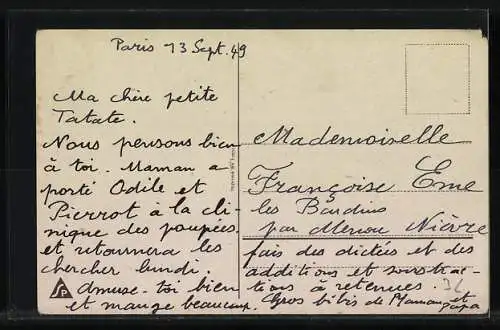 Paris 13 Sept. 49
Ma chère petite
Tatate.
Nous pensons bien
à toi. Maman a
porté Odile et
Pierrot à la cli-
nique des poupées
et retournera les
chercher lundi.
Amuse-toi bien
et mange beaucoup.
Mademoiselle
Françoise Eme
les Bardins
par Menou Nièvre
fais des dictées et des
additions et soustrac-
tions à retenues.
Gros bibis de Maman et
papa